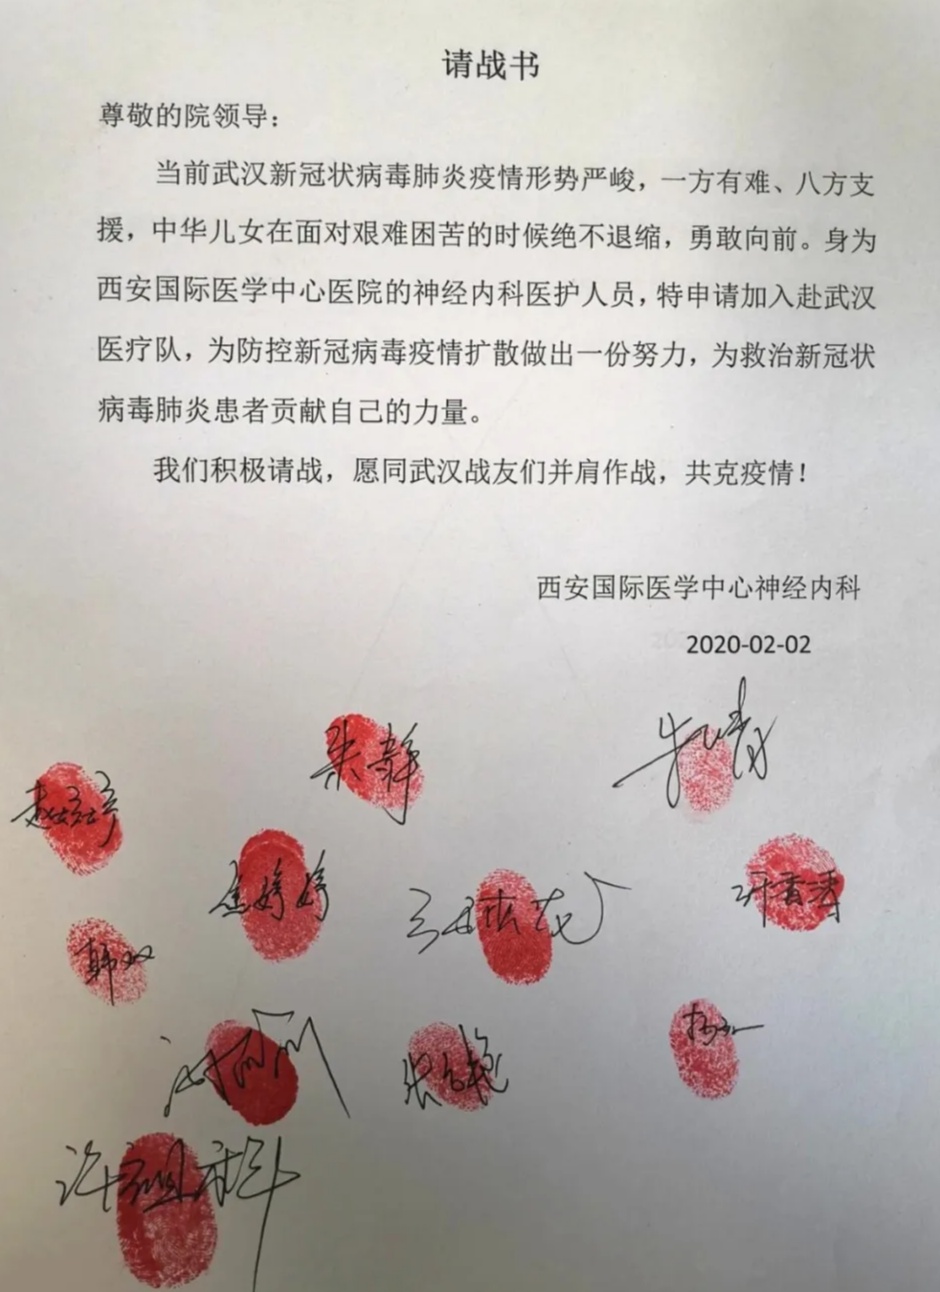 请战书
尊敬的院领导：
当前武汉新冠状病毒肺炎疫情形势严峻，一方有难、八方支
援，中华儿女在面对艰难困苦的时候绝不退缩，勇敢向前。身为
西安国际医学中心医院的神经内科医护人员，特申请加入赴武汉
医疗队，为防控新冠病毒疫情扩散做出一份努力，为救治新冠状
病毒肺炎患者贡献自己的力量。
我们积极请战，愿同武汉战友们并肩作战，共克疫情！
西安国际医学中心神经内科
2020-02-02
焦婷婷
韩双